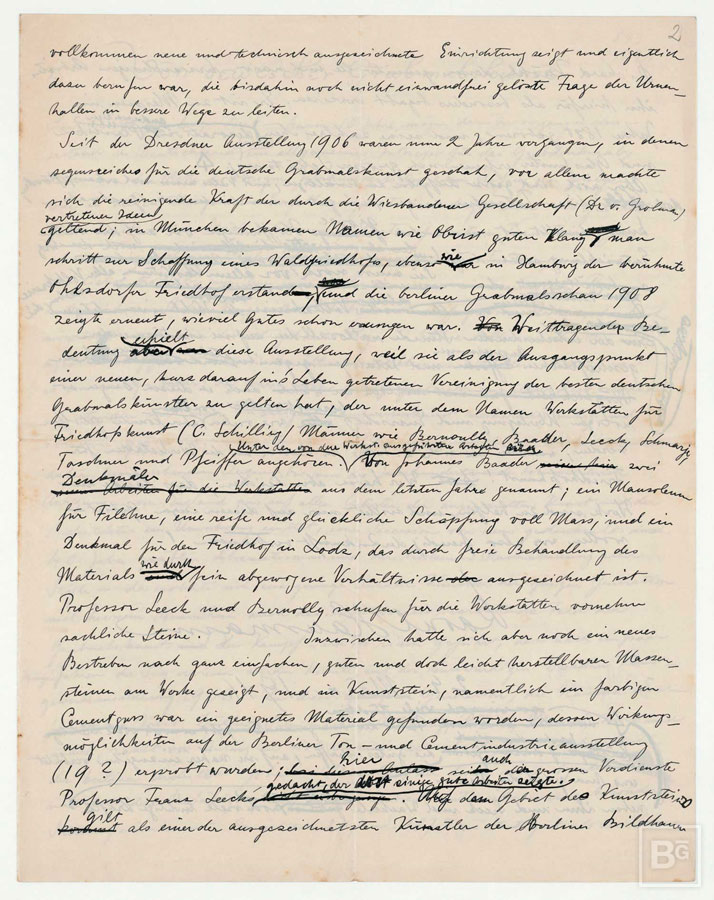 2
vollkommen neue und technisch ausgezeichnete Einrichtung zeigt und eigentlich
dazu berufen war, die bisdahin noch nicht einwandfrei gelöste Frage der Urnen-
hallen in bessere Wege zu leiten.
Seit der Dresdner Ausstellung 1906 waren nun 2 Jahre vergangen, in denen
segensreiches für die deutsche Grabmalskunst geschah, vor allem machte
sich die reinigende Kraft der durch die Wiesbadener Gesellschaft (Dr. v. Grolman)
vertretenen Ideen
geltend; in München bekamen Namen wie Obrist guten Klang, man
schritt zur Schaffung eines Waldfriedhofes, ebenso wie in Hamburg der berühmte
Ohlsdorfer Friedhof erstand, und die berliner Grabmalsschau 1908
zeigte erneut, wieviel Gutes schon errungen war. Weittragende Be-
deutung erhielt diese Ausstellung, weil sie als der Ausgangspunkt
einer neuen, kurz darauf in's Leben getretenen Vereinigung der besten deutschen
Grabmalskünstler zu gelten hat, der unter dem Namen Werkstätten für
Friedhofskunst (C. Schilling) Männer wie Bernoully, Baader, Leeck, Schmarje
Taschner und Pfeiffer angehören. Unter den von den Werkst. ausgeführten Arbeiten
Von Johannes Baader zwei
Denkmäler
aus dem letzten Jahre genannt; ein Mausoleum
für Filehne, eine reife und glückliche Schöpfung voll Mass, und ein
Denkmal für den Friedhof in Lodz, das durch freie Behandlung des
Materials wie durch fein abgewogene Verhältnisse ausgezeichnet ist.
Professor Leeck und Bernoully schufen für die Werkstätten vornehm
sachliche Steine. Inzwischen hatte sich aber noch ein neues
Bestreben nach ganz einfachen, guten und doch leicht herstellbaren Massen-
steinen am Werke gezeigt, und im Kunststein, namentlich im farbigen
Cementguss war ein geeignetes Material gefunden worden, dessen Wirkungs-
möglichkeiten auf der Berliner Ton- und Cementindustrieausstellung
(19 ?) erprobt wurden; hier sei auch der grossen Verdienste
Professor Franz Leecks gedacht, der dort einige gute Arbeiten zeigte. Auf dem Gebiet des Kunststeins
gilt als einer der ausgezeichnetsten Künstler der Berliner Bildhauer
BG